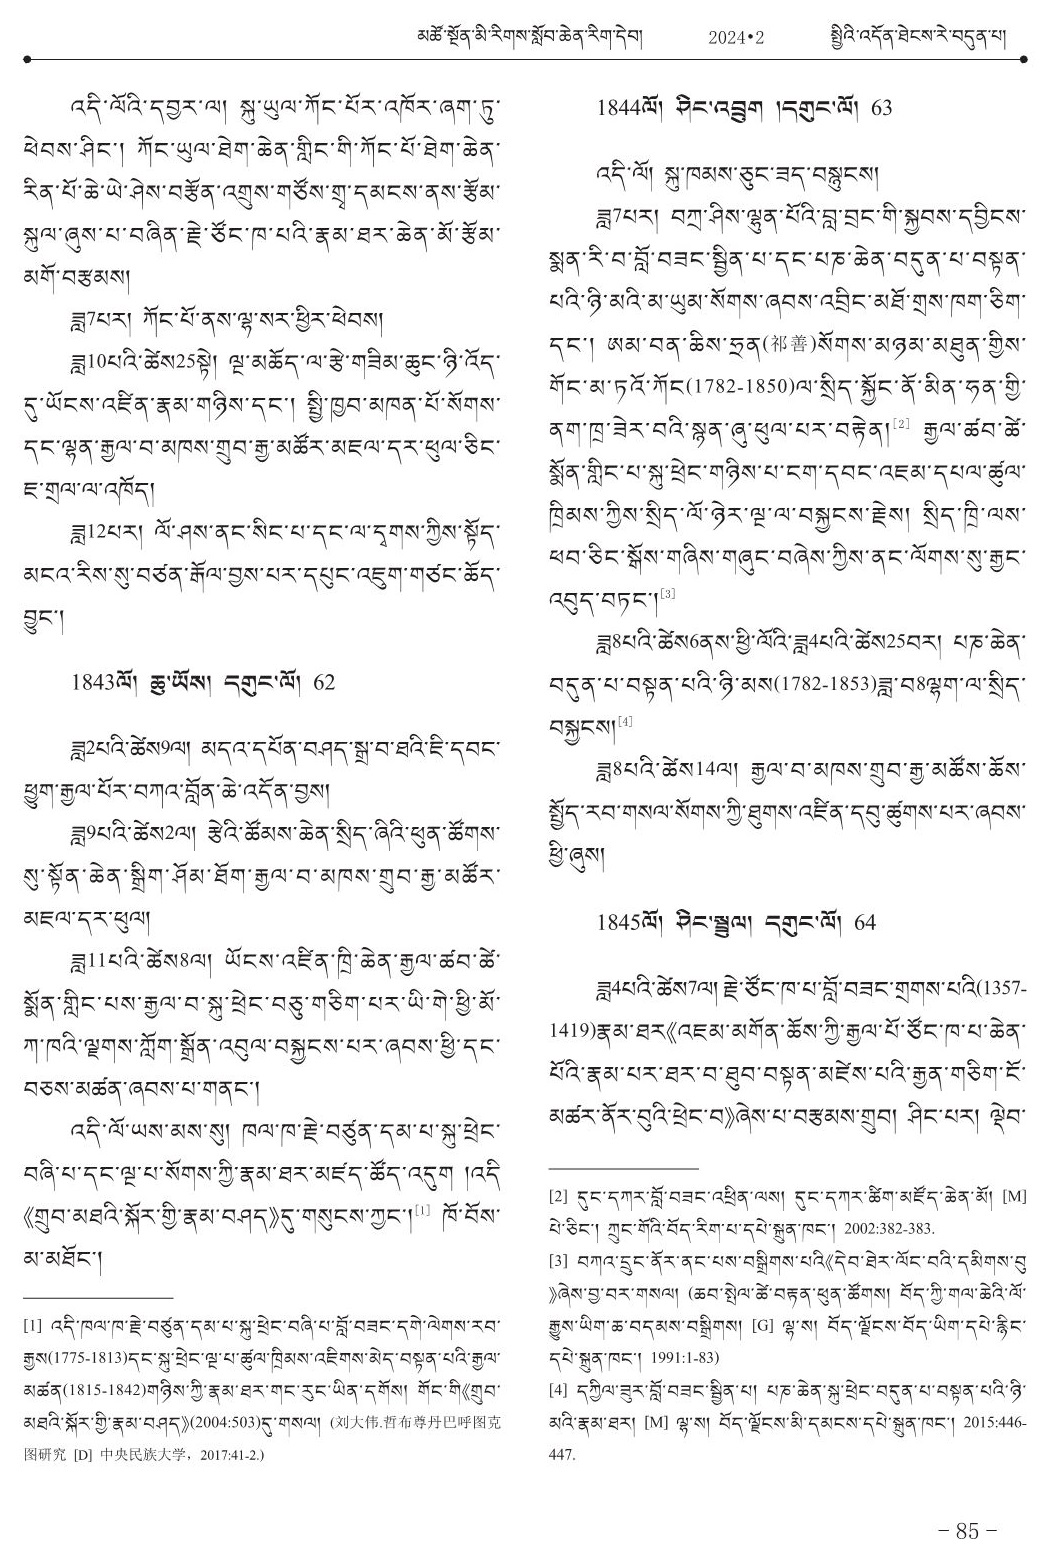 མཚོ་སྔོན་མི་རིགས་སློབ་ཆེན་རིག་དེབ། 2024•2 སྤྱིའི་འདོན་ཐེངས་རེ་བདུན་པ།
འདི་ལོའི་དབྱར་ལ། སྐུ་ཡུལ་ཀོང་པོར་འཁོར་ཞག་ཏུ་
ཕེབས་ཤིང་། ཀོང་ཡུལ་ཐེག་ཆེན་གླིང་གི་ཀོང་པོ་ཐེག་ཆེན་
རིན་པོ་ཆེ་ཡེ་ཤེས་བརྩོན་འགྲུས་གཙོས་གྲྭ་དམངས་ནས་རྩོམ་
སྐུལ་ཞུས་པ་བཞིན་རྗེ་ཙོང་ཁ་པའི་རྣམ་ཐར་ཆེན་མོ་རྩོམ་
མགོ་བརྩམས།
ཟླ7པར། ཀོང་པོ་ནས་ལྷ་སར་ཕྱིར་ཕེབས།
ཟླ10པའི་ཚེས25སྟེ། ལྔ་མཆོད་ལ་རྩེ་གཟིམ་ཆུང་ཉི་འོད་
དུ་ཡོངས་འཛིན་རྣམ་གཉིས་དང་། སྤྱི་ཁྱབ་མཁན་པོ་སོགས་
དང་ལྷན་རྒྱལ་བ་མཁས་གྲུབ་རྒྱ་མཚོར་མཇལ་དར་ཕུལ་ཅིང་
ཇ་གྲལ་ལ་འཁོད།
ཟླ12པར། ལོ་ཤས་ནང་སིང་པ་དང་ལ་དྭགས་ཀྱིས་སྟོད་
མངའ་རིས་སུ་བཙན་རྒོལ་བྱས་པར་དཔུང་འཇུག་གཙང་ཚོད་
བྱུང་།
1843ལོ། ཆུ་ཡོས། དགུང་ལོ། 62
ཟླ2པའི་ཚེས9ལ། མདའ་དཔོན་བཤད་སྒྲ་བ་ཐའི་ཇི་དབང་
ཕྱུག་རྒྱལ་པོར་བཀའ་བློན་ཆེ་འདོན་བྱས།
ཟླ9པའི་ཚེས2ལ། རྩེའི་ཚོམས་ཆེན་སྲིད་ཞིའི་ཕུན་ཚོགས་
སུ་སྟོན་ཆེན་སྒྲིག་ཤོམ་ཐོག་རྒྱལ་བ་མཁས་གྲུབ་རྒྱ་མཚོར་
མཇལ་དར་ཕུལ།
ཟླ11པའི་ཚེས8ལ། ཡོངས་འཛིན་ཁྲི་ཆེན་རྒྱལ་ཚབ་ཚེ་
སྨོན་གླིང་པས་རྒྱལ་བ་སྐུ་ཕྲེང་བཅུ་གཅིག་པར་ཡི་གེ་ཕྱི་མོ་
ཀ་ཁའི་ལྗགས་ཀློག་སྒྲོན་འབུལ་བསྐྱངས་པར་ཞབས་ཕྱི་དང་
བཅས་མཚན་ཞབས་པ་གནང་།
འདི་ལོ་ཡས་མས་སུ། ཁལ་ཁ་རྗེ་བཙུན་དམ་པ་སྐུ་ཕྲེང་
བཞི་པ་དང་ལྔ་པ་སོགས་ཀྱི་རྣམ་ཐར་མཛད་ཚོད་འདུག །འདི
《གྲུབ་མཐའི་སྐོར་གྱི་རྣམ་བཤད》དུ་གསུངས་ཀྱང་།[1] ཁོ་བོས་
མ་མཐོང་།
[1] འདི་ཁལ་ཁ་རྗེ་བཙུན་དམ་པ་སྐུ་ཕྲེང་བཞི་པ་བློ་བཟང་དགེ་ལེགས་རབ་
རྒྱས(1775-1813)དང་སྐུ་ཕྲེང་ལྔ་པ་ཚུལ་ཁྲིམས་འཇིགས་མེད་བསྟན་པའི་རྒྱལ་
མཚན(1815-1842)གཉིས་ཀྱི་རྣམ་ཐར་གང་རུང་ཡིན་དགོས། གོང་གི《གྲུབ་
མཐའི་སྐོར་གྱི་རྣམ་བཤད》(2004:503)དུ་གསལ། (刘大伟.哲布尊丹巴呼图克
图研究 [D] 中央民族大学，2017:41-2.)
1844ལོ། ཤིང་འབྲུག །དགུང་ལོ། 63
འདི་ལོ། སྐུ་ཁམས་ཅུང་ཟད་བསྙུངས།
ཟླ7པར། བཀྲ་ཤིས་ལྷུན་པོའི་བླ་བྲང་གི་སྐྱབས་དབྱིངས་
སྨན་རི་བ་བློ་བཟང་སྦྱིན་པ་དང་པཎ་ཆེན་བདུན་པ་བསྟན་
པའི་ཉི་མའི་མ་ཡུམ་སོགས་ཞབས་འབྲིང་མཐོ་གྲས་ཁག་ཅིག་
དང་། ཨམ་བན་ཆིས་ཧྲན(祁善)སོགས་མཉམ་མཐུན་གྱིས་
གོང་མ་ཏའོ་ཀོང(1782-1850)ལ་སྲིད་སྐྱོང་ནོ་མིན་ཧན་གྱི་
ནག་ཁྲ་ཟེར་བའི་སྙན་ཞུ་ཕུལ་པར་བརྟེན།[2] རྒྱལ་ཚབ་ཚེ་
སྨོན་གླིང་པ་སྐུ་ཕྲེང་གཉིས་པ་ངག་དབང་འཇམ་དཔལ་ཚུལ་
ཁྲིམས་ཀྱིས་སྲིད་ལོ་ཉེར་ལྔ་ལ་བསྐྱངས་རྗེས། སྲིད་ཁྲི་ལས་
ཕབ་ཅིང་སྒོས་གཞིས་གཞུང་བཞེས་ཀྱིས་ནང་ལོགས་སུ་རྒྱང་
འབུད་བཏང་།[3]
ཟླ8པའི་ཚེས6ནས་ཕྱི་ལོའི་ཟླ4པའི་ཚེས25བར། པཎ་ཆེན་
བདུན་པ་བསྟན་པའི་ཉི་མས(1782-1853)ཟླ་བ8ལྷག་ལ་སྲིད་
བསྐྱངས།[4]
ཟླ8པའི་ཚེས14ལ། རྒྱལ་བ་མཁས་གྲུབ་རྒྱ་མཚོས་ཆོས་
སྤྱོད་རབ་གསལ་སོགས་ཀྱི་ཐུགས་འཛིན་དབུ་ཚུགས་པར་ཞབས་
ཕྱི་ཞུས།
1845ལོ། ཤིང་སྦྲུལ། དགུང་ལོ། 64
ཟླ4པའི་ཚེས7ལ། རྗེ་ཙོང་ཁ་པ་བློ་བཟང་གྲགས་པའི(1357-
1419)རྣམ་ཐར《འཇམ་མགོན་ཆོས་ཀྱི་རྒྱལ་པོ་ཙོང་ཁ་པ་ཆེན་
པོའི་རྣམ་པར་ཐར་བ་ཐུབ་བསྟན་མཛེས་པའི་རྒྱན་གཅིག་ངོ་
མཚར་ནོར་བུའི་ཕྲེང་བ》ཞེས་པ་བརྩམས་གྲུབ། ཤིང་པར། ལྡེབ་
[2] དུང་དཀར་བློ་བཟང་འཕྲིན་ལས། དུང་དཀར་ཚིག་མཛོད་ཆེན་མོ། [M]
པེ་ཅིང་། ཀྲུང་གོའི་བོད་རིག་པ་དཔེ་སྐྲུན་ཁང་། 2002:382-383.
[3] བཀའ་དྲུང་ནོར་ནང་པས་བསྒྲིགས་པའི《དེབ་ཐེར་ལོང་བའི་དམིགས་བུ
》ཞེས་བྱ་བར་གསལ། (ཆབ་སྤེལ་ཚེ་བརྟན་ཕུན་ཚོགས། བོད་ཀྱི་གལ་ཆེའི་ལོ་
རྒྱུས་ཡིག་ཆ་བདམས་བསྒྲིགས། [G] ལྷ་ས། བོད་ལྗོངས་བོད་ཡིག་དཔེ་རྙིང་
དཔེ་སྐྲུན་ཁང་། 1991:1-83)
[4] དཀྱིལ་ཟུར་བློ་བཟང་སྦྱིན་པ། པཎ་ཆེན་སྐུ་ཕྲེང་བདུན་པ་བསྟན་པའི་ཉི་
མའི་རྣམ་ཐར། [M] ལྷ་ས། བོད་ལྗོངས་མི་དམངས་དཔེ་སྐྲུན་ཁང་། 2015:446-
447.
- 85 -